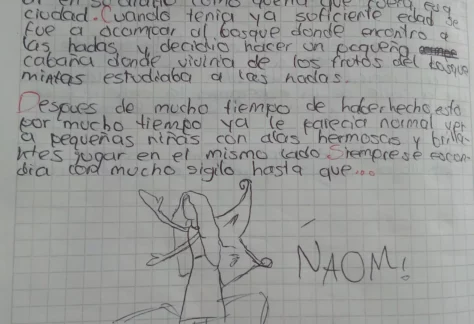 ciudad. Cuando tenia ya suficiente edad se
fue a acampar al bosque donde encontro a
las hadas y decidio hacer un pequeña
cabaña donde viviria de los frutos del bosque
mintas estudiaba a las hadas.
Despues de mucho tiempo de haber hecho esto
por mucho tiempo ya le parecia normal ver
a pequeñas niñas con alas hermosas y brilla-
ntes jugar en el mismo lado. Siempre se escon-
dia con mucho sigilo hasta que...
NAOMI